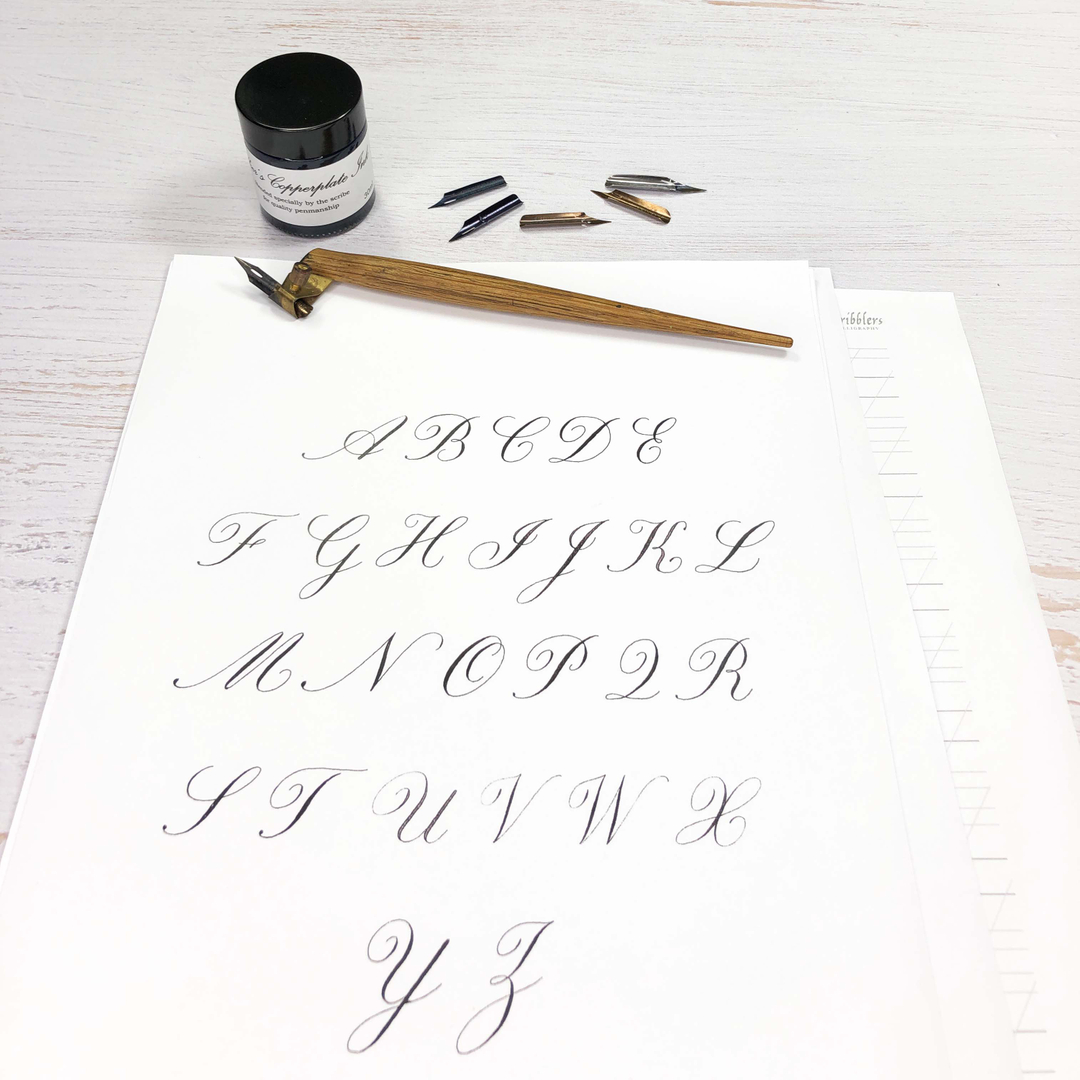 Copperplate Ink
specially by the scribe
for quality penmanship
A B C D E
F G H I J K L
M N O P Q R
S T U V W X
Y Z